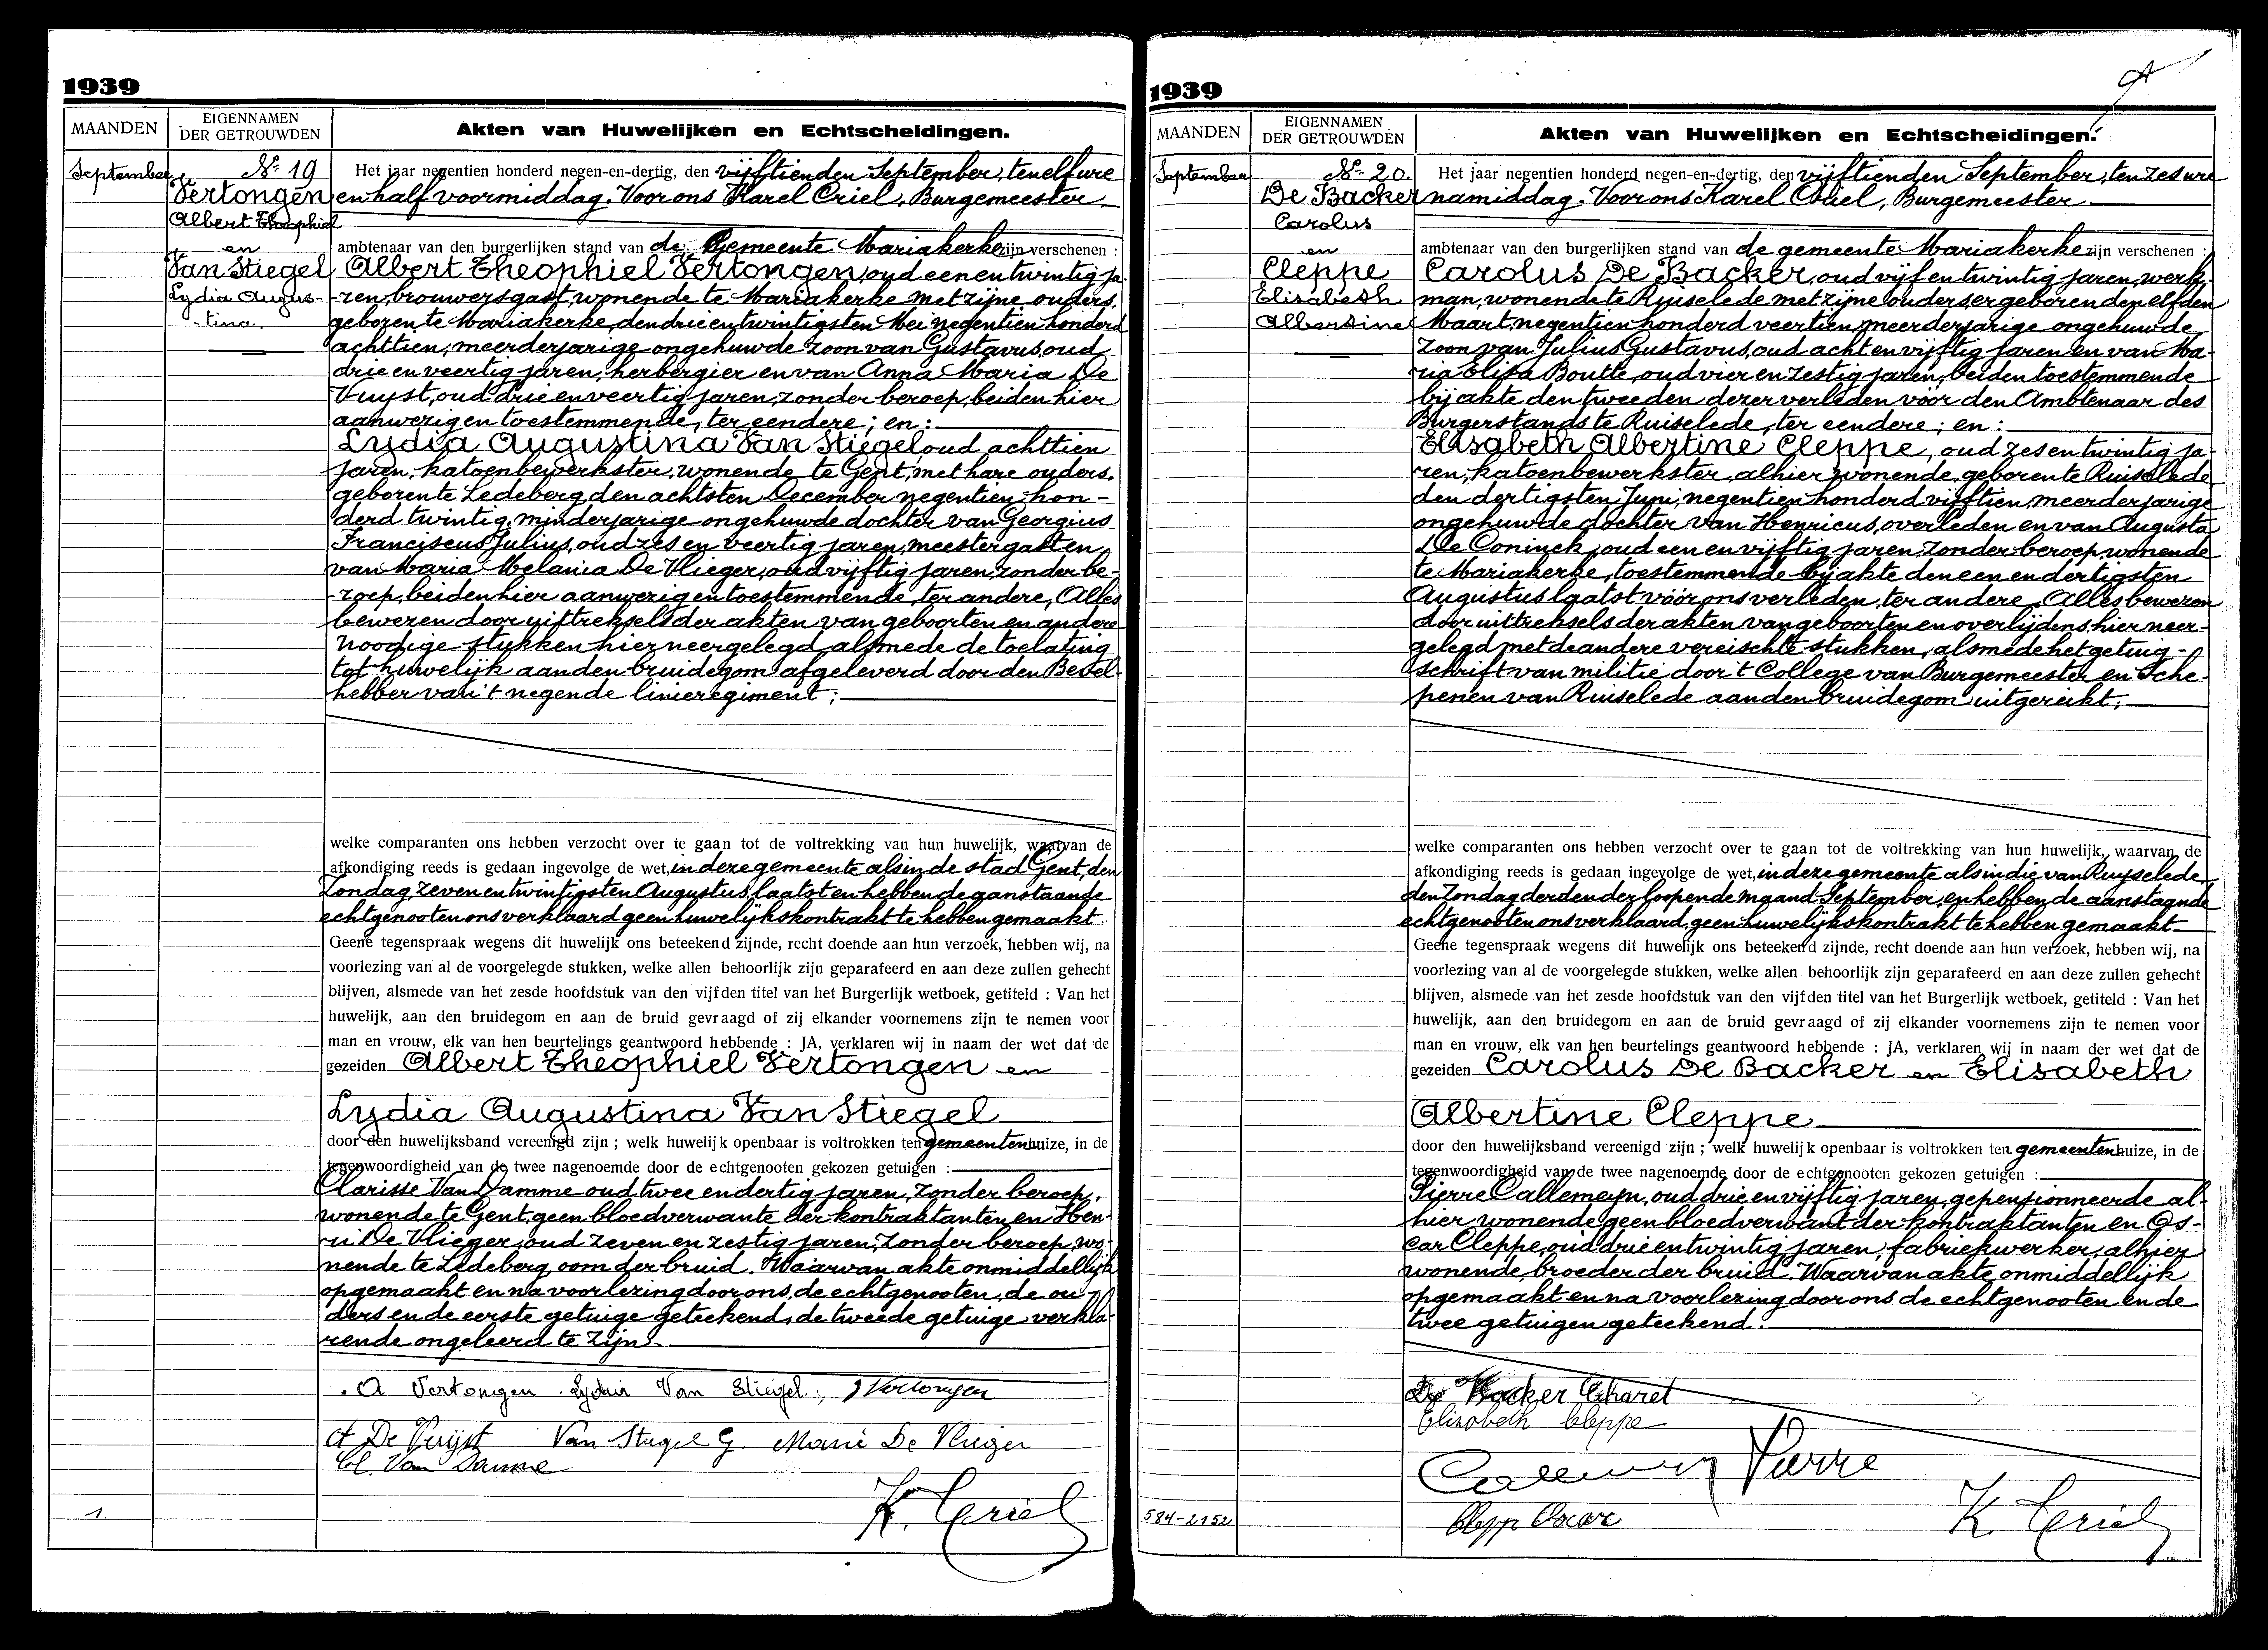 1939
MAANDEN
EIGENNAMEN
DER GETROUWDEN
Akten van Huwelijken en Echtscheidingen.
September
Nr 19
Vertongen
Albert Theophiel
en
Van Stiegel
Lydia Augus-
-tina.
Het jaar negentien honderd negen-en-dertig, den vijftienden September, ten elf ure
en half voormiddag. Voor ons Karel Criel, Burgemeester,
ambtenaar van den burgerlijken stand van de Gemeente Mariakerke zijn verschenen :
Albert Theophiel Vertongen, oud een en twintig ja-
-ren, brouwersgast, wonende te Mariakerke met zijne ouders,
geboren te Mariakerke, den drie en twintigsten Mei negentien honderd
achttien, meerderjarige ongehuwde zoon van Gustavus, oud
drie en veertig jaren, herbergier en van Anna Maria De
Vuyst, oud drie en veertig jaren, zonder beroep, beiden hier
aanwezig en toestemmende, ter eendere; en:
Lydia Augustina Van Stiegel, oud achttien
jaren, katoenbewerkster, wonende te Gent, met hare ouders,
geboren te Ledeberg, den achtsten December negentien hon-
derd twintig, minderjarige ongehuwde dochter van Georgius
Franciscus Julius, oud zes en veertig jaren, meestergast en
van Maria Melania De Vlieger, oud vijftig jaren, zonder be-
-roep, beiden hier aanwezig en toestemmende, ter andere, Alles
bewezen door uittreksels der akten van geboorten en andere
noodige stukken hier neergelegd, alsmede de toelating
tot huwelijk aan den bruidegom afgeleverd door den Bevel-
hebber van 't negende linieregiment;
welke comparanten ons hebben verzocht over te gaan tot de voltrekking van hun huwelijk, waarvan de
afkondiging reeds is gedaan ingevolge de wet, in deze gemeente als in de stad Gent, den
Zondag, zeven en twintigsten Augustus laatst en hebben de aanstaande
echtgenooten ons verklaard geen huwelijkskontrakt te hebben gemaakt.
Geene tegenspraak wegens dit huwelijk ons beteekend zijnde, recht doende aan hun verzoek, hebben wij, na
voorlezing van al de voorgelegde stukken, welke allen behoorlijk zijn geparafeerd en aan deze zullen gehecht
blijven, alsmede van het zesde hoofdstuk van den vijfden titel van het Burgerlijk wetboek, getiteld : Van het
huwelijk, aan den bruidegom en aan de bruid gevraagd of zij elkander voornemens zijn te nemen voor
man en vrouw, elk van hen beurtelings geantwoord hebbende : JA, verklaren wij in naam der wet dat de
gezeiden Albert Theophiel Vertongen en
Lydia Augustina Van Stiegel
door den huwelijksband vereenigd zijn ; welk huwelijk openbaar is voltrokken ten gemeentenhuize, in de
tegenwoordigheid van de twee nagenoemde door de echtgenooten gekozen getuigen :
Clarisse Van Damme oud twee en dertig jaren, zonder beroep,
wonende te Gent, geen bloedverwante der kontraktanten en Hen-
ri De Vlieger, oud zeven en zestig jaren, zonder beroep, wo-
nende te Ledeberg, oom der bruid. Waarvan akte onmiddellijk
opgemaakt en na voorlezing door ons, de echtgenooten, de ou-
ders en de eerste getuige geteekend, de tweede getuige verkla-
rende ongeleerd te zijn.
A Vertongen Lydia Van Stiegel, J Vertongen
A De Vuijst Van Stiegel G. Marie De Vlieger
Cl. Van Damme
K. Criel
1.
1939
MAANDEN
EIGENNAMEN
DER GETROUWDEN
Akten van Huwelijken en Echtscheidingen.
September
Nr 20.
De Backer
Carolus
en
Cleppe
Elisabeth
Albertine
Het jaar negentien honderd negen-en-dertig, den vijftienden September, ten zes ure
namiddag. Voor ons Karel Criel, Burgemeester
ambtenaar van den burgerlijken stand van de gemeente Mariakerke zijn verschenen :
Carolus De Backer, oud vijf en twintig jaren, werk-
man, wonende te Ruiselede met zijne ouders, er geboren den elfden
Maart, negentien honderd veertien, meerderjarige ongehuwde
zoon van Julius Gustavus, oud acht en vijftig jaren en van Ma-
ria Elisa Boutte, oud vier en zestig jaren, beiden toestemmende
bij akte den tweeden dezer verleden voor den Ambtenaar des
Burgerstands te Ruiselede, ter eendere; en:
Elisabeth Albertine Cleppe, oud zes en twintig ja-
ren, katoenbewerkster, alhier wonende, geboren te Ruiselede
den dertigsten Juni, negentien honderd vijftien, meerderjarige
ongehuwde dochter van Henricus, overleden en van Augusta
De Coninck, oud een en vijftig jaren, zonder beroep, wonende
te Mariakerke, toestemmende bij akte den een en dertigsten
Augustus laatst vóór ons verleden, ter andere. Alles bewezen
door uittreksels der akten van geboorten en overlijdens hier neer-
gelegd met de andere vereischte stukken, alsmede het getuig-
schrift van militie door 't College van Burgemeester en Sche-
penen van Ruiselede aan den bruidegom uitgereikt;
welke comparanten ons hebben verzocht over te gaan tot de voltrekking van hun huwelijk, waarvan de
afkondiging reeds is gedaan ingevolge de wet, in deze gemeente als in die van Ruyselede
den Zondag derden der loopende maand September, en hebben de aanstaande
echtgenooten ons verklaard, geen huwelijkskontrakt te hebben gemaakt
Geene tegenspraak wegens dit huwelijk ons beteekend zijnde, recht doende aan hun verzoek, hebben wij, na
voorlezing van al de voorgelegde stukken, welke allen behoorlijk zijn geparafeerd en aan deze zullen gehecht
blijven, alsmede van het zesde hoofdstuk van den vijfden titel van het Burgerlijk wetboek, getiteld : Van het
huwelijk, aan den bruidegom en aan de bruid gevraagd of zij elkander voornemens zijn te nemen voor
man en vrouw, elk van hen beurtelings geantwoord hebbende : JA, verklaren wij in naam der wet dat de
gezeiden Carolus De Backer en Elisabeth
Albertine Cleppe
door den huwelijksband vereenigd zijn ; welk huwelijk openbaar is voltrokken ten gemeentenhuize, in de
tegenwoordigheid van de twee nagenoemde door de echtgenooten gekozen getuigen :
Pierre Callemeyn, oud drie en vijftig jaren, gepensionneerde al-
hier wonende, geen bloedverwant der kontraktanten en Os-
car Cleppe, oud drie en twintig jaren, fabriekwerker, alhier
wonende, broeder der bruid. Waarvan akte onmiddellijk
opgemaakt en na voorlezing door ons de echtgenooten en de
twee getuigen geteekend.
De Backer Charel
Elisabeth Cleppe
Pierre
Clepp Oscar
K Criel
584-2152